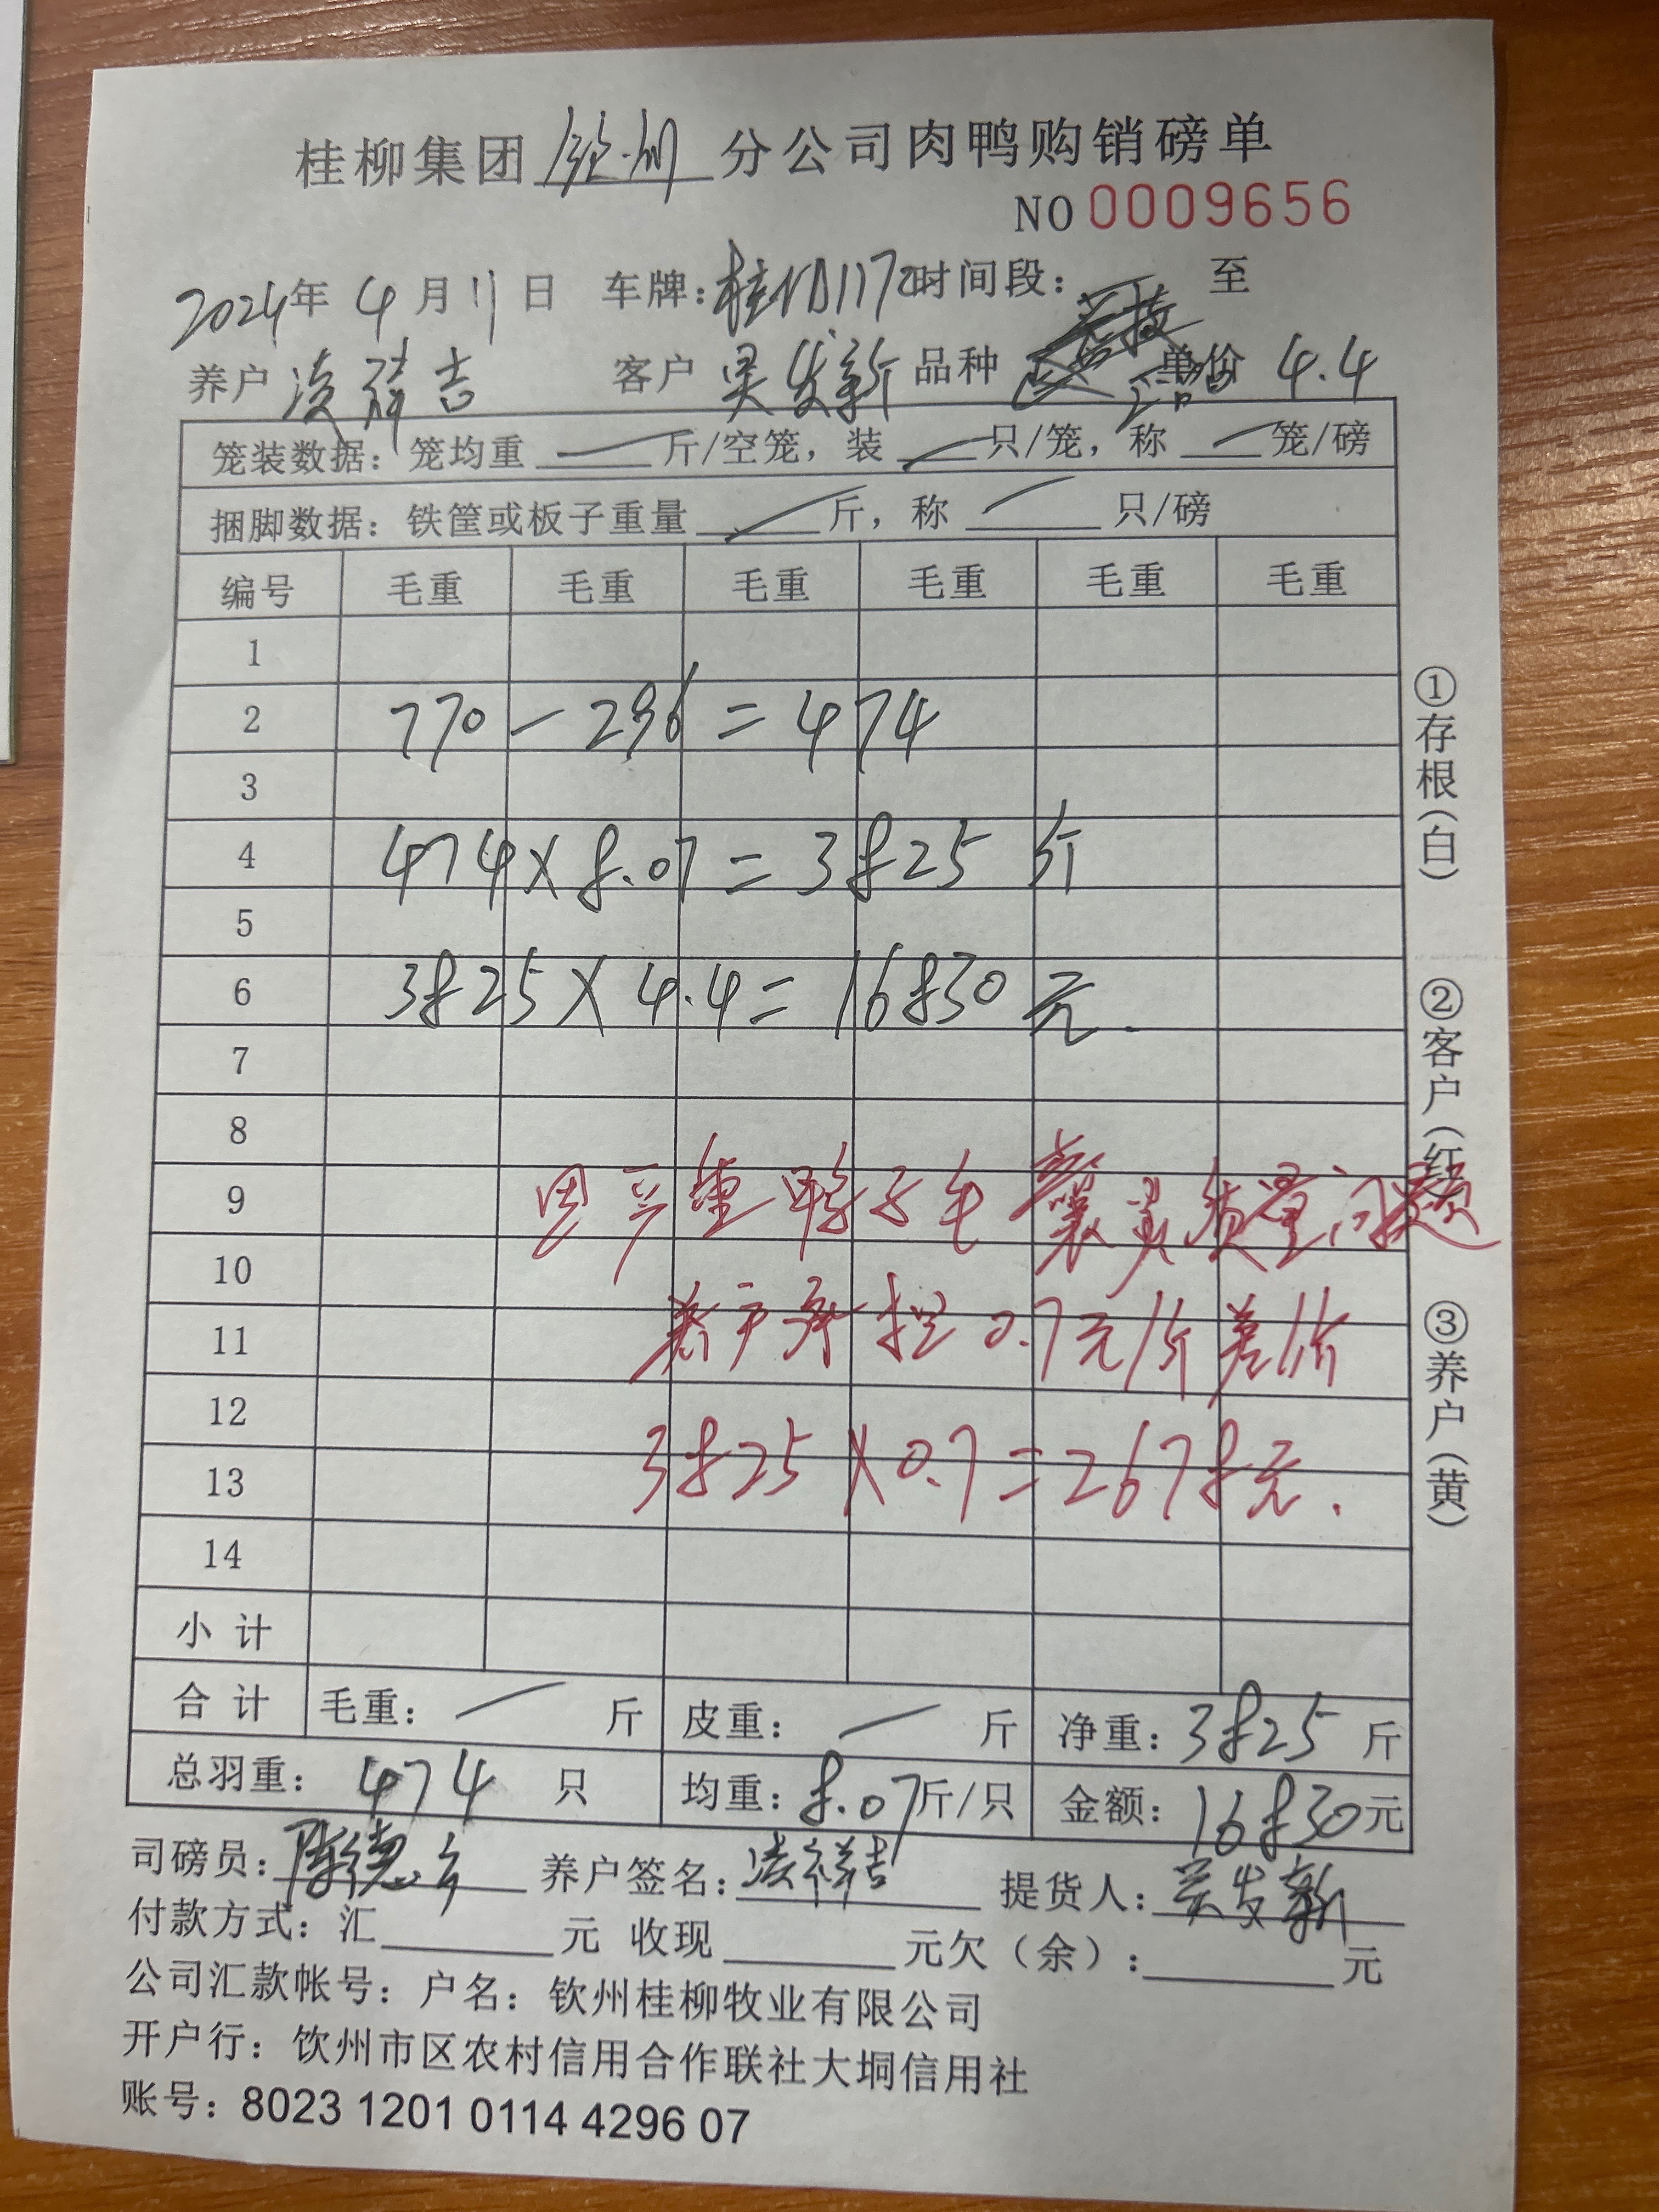 桂柳集团钦州分公司肉鸭购销磅单
NO 0009656
2024年 4月 11日 车牌: 时间段: 至
养户 凌祥吉 客户 吴发新 品种 单价 4.4
笼装数据: 笼均重 — 斤/空笼, 装 — 只/笼, 称 — 笼/磅
捆脚数据: 铁筐或板子重量 — 斤, 称 — 只/磅
编号 毛重 毛重 毛重 毛重 毛重 毛重
1
2 770 - 296 = 474
3
4 474 × 8.07 = 3825 斤
5
6 3825 × 4.4 = 16830 元.
7
8
9 因 鸭子毛 质量问题
10
11 养户承担 0.7元/斤差价
12
13 3825 × 0.7 = 2678元.
14
小 计
合 计 毛重: — 斤 皮重: — 斤 净重: 3825 斤
总羽重: 474 只 均重: 8.07斤/只 金额: 16830元
司磅员: 陈德 养户签名: 凌祥吉 提货人: 吴发新
付款方式: 汇 元 收现 元欠(余): 元
公司汇款帐号: 户名: 钦州桂柳牧业有限公司
开户行: 钦州市区农村信用合作联社大垌信用社
账号: 8023 1201 0114 4296 07
①存根(白) ②客户(红) ③养户(黄)